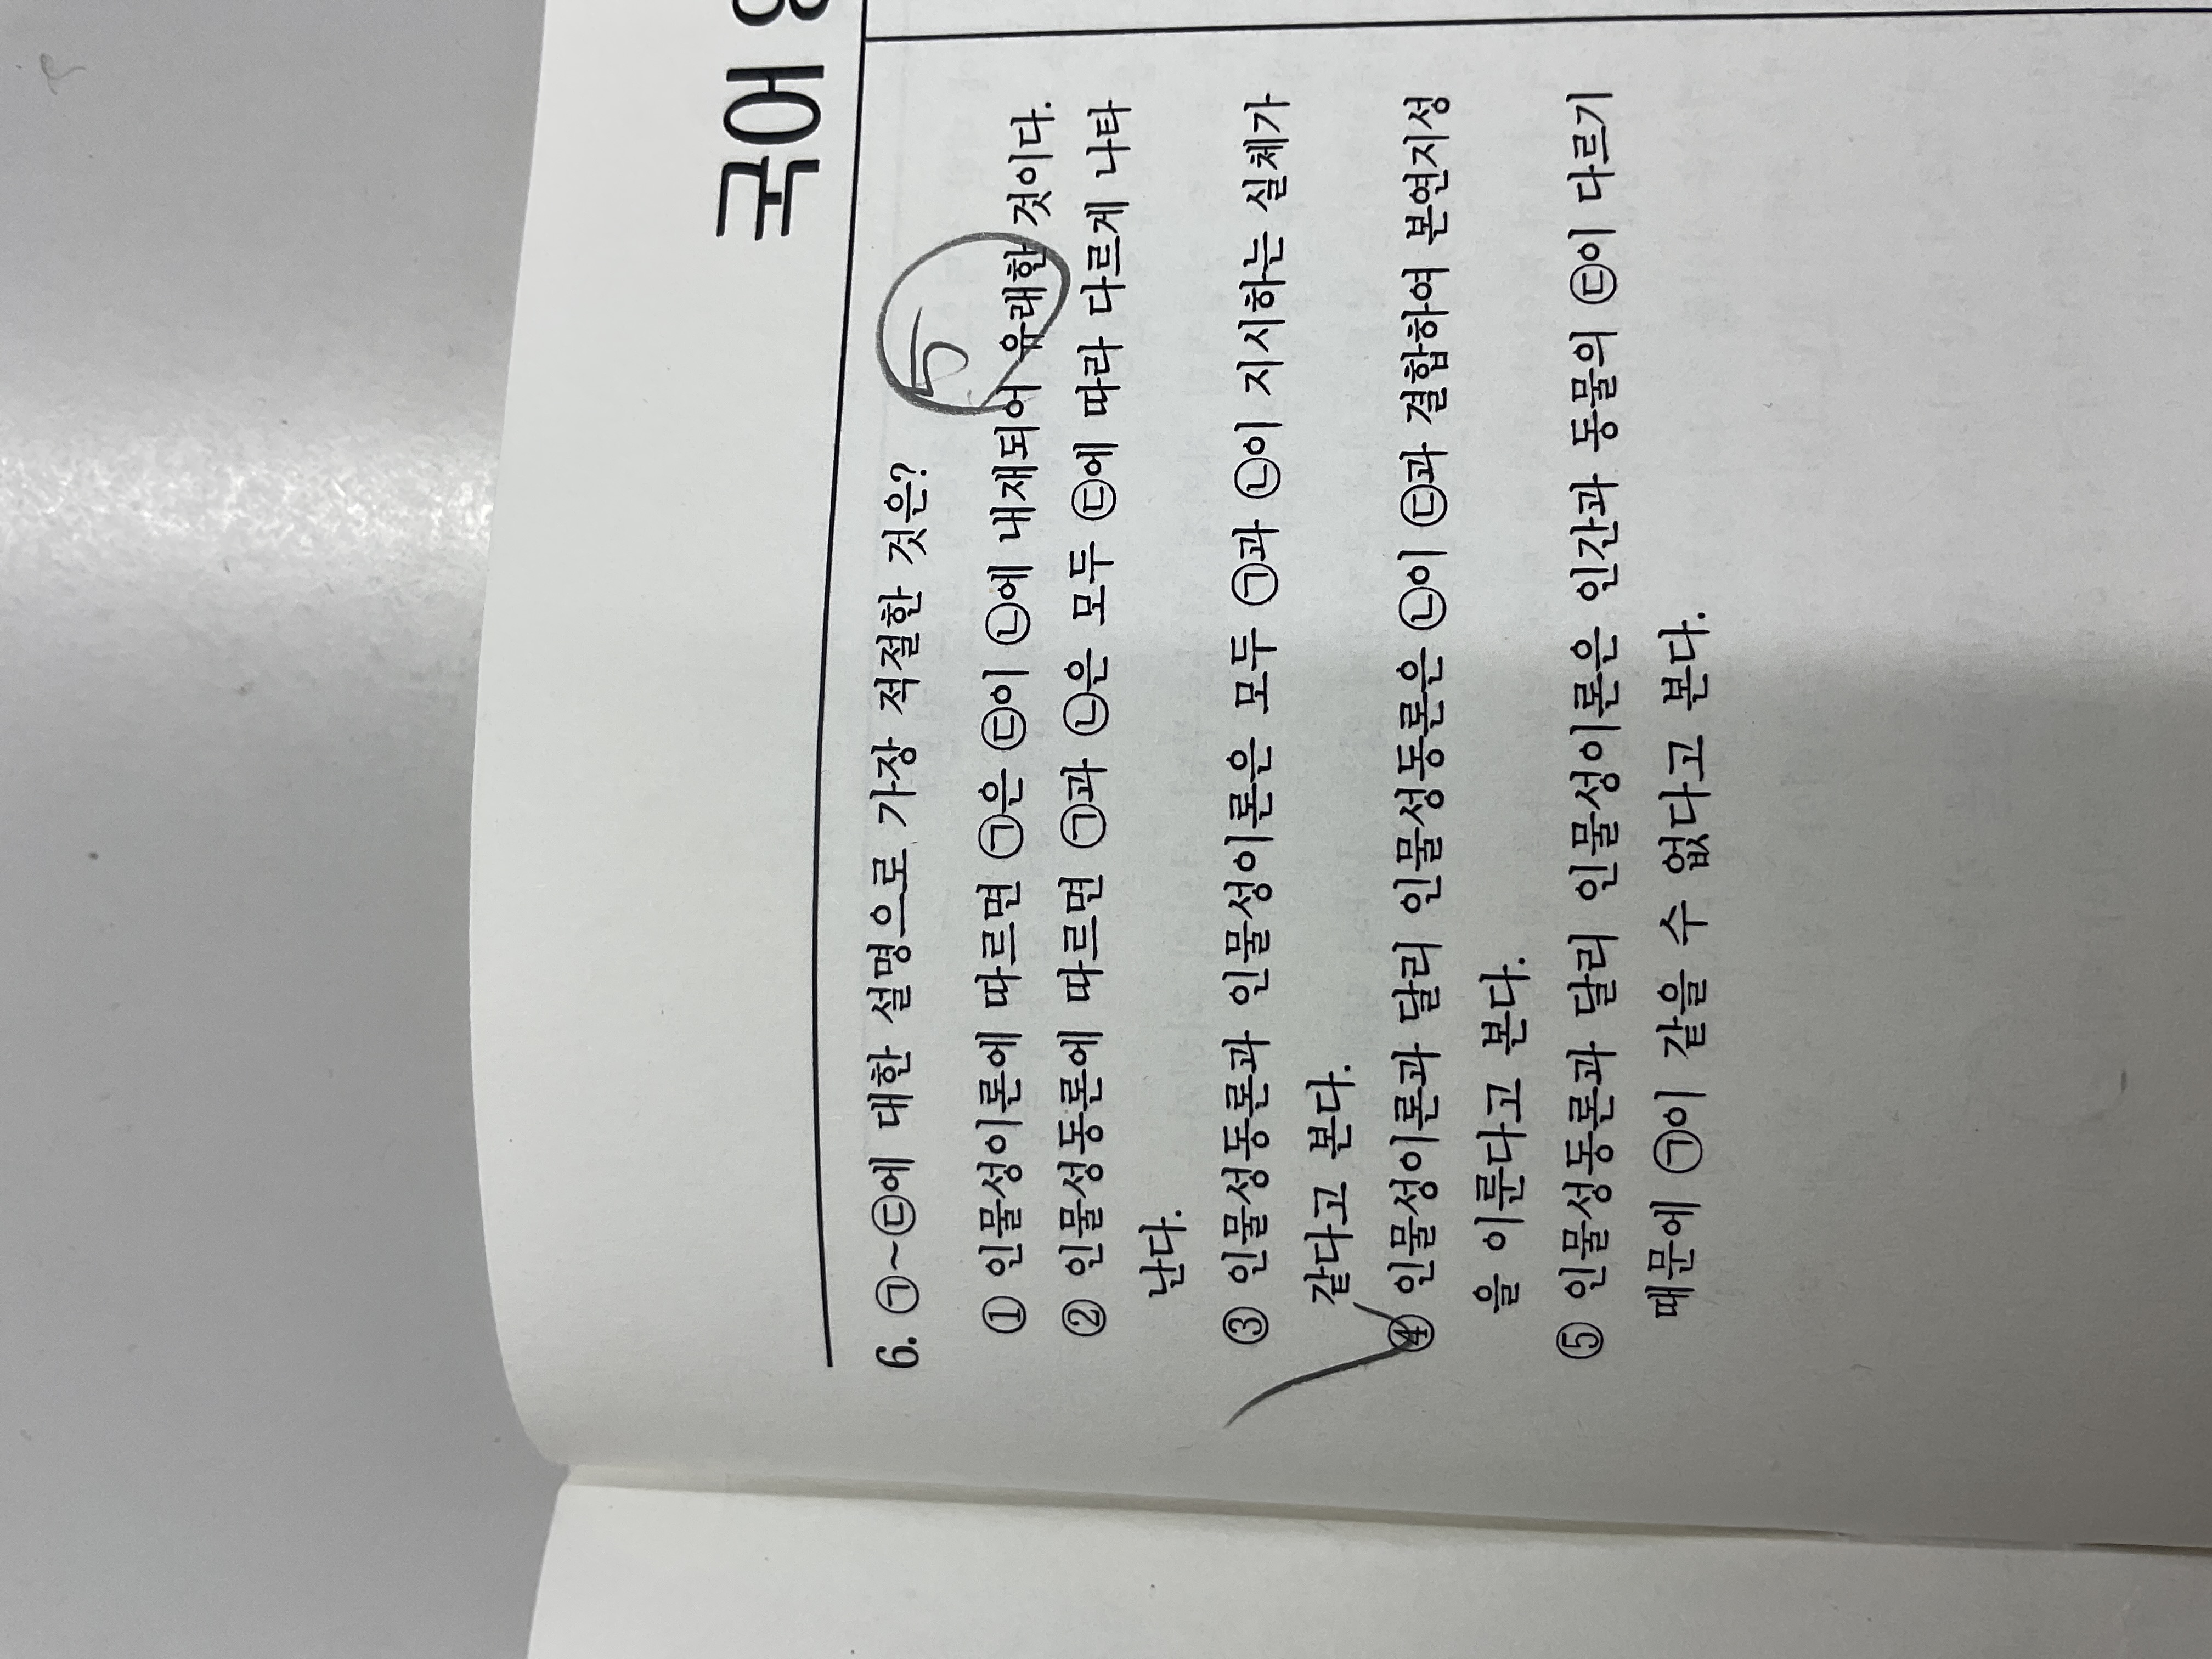 국어 영
6. ㉠~㉢에 대한 설명으로 가장 적절한 것은?
5
① 인물성이론에 따르면 ㉠은 ㉢이 ㉡에 내재되어 유래한 것이다.
② 인물성동론에 따르면 ㉠과 ㉡은 모두 ㉢에 따라 다르게 나타
난다.
③ 인물성동론과 인물성이론은 모두 ㉠과 ㉡이 지시하는 실체가
같다고 본다.
④ 인물성이론과 달리 인물성동론은 ㉡이 ㉢과 결합하여 본연지성
을 이룬다고 본다.
⑤ 인물성동론과 달리 인물성이론은 인간과 동물의 ㉢이 다르기
때문에 ㉠이 같을 수 없다고 본다.